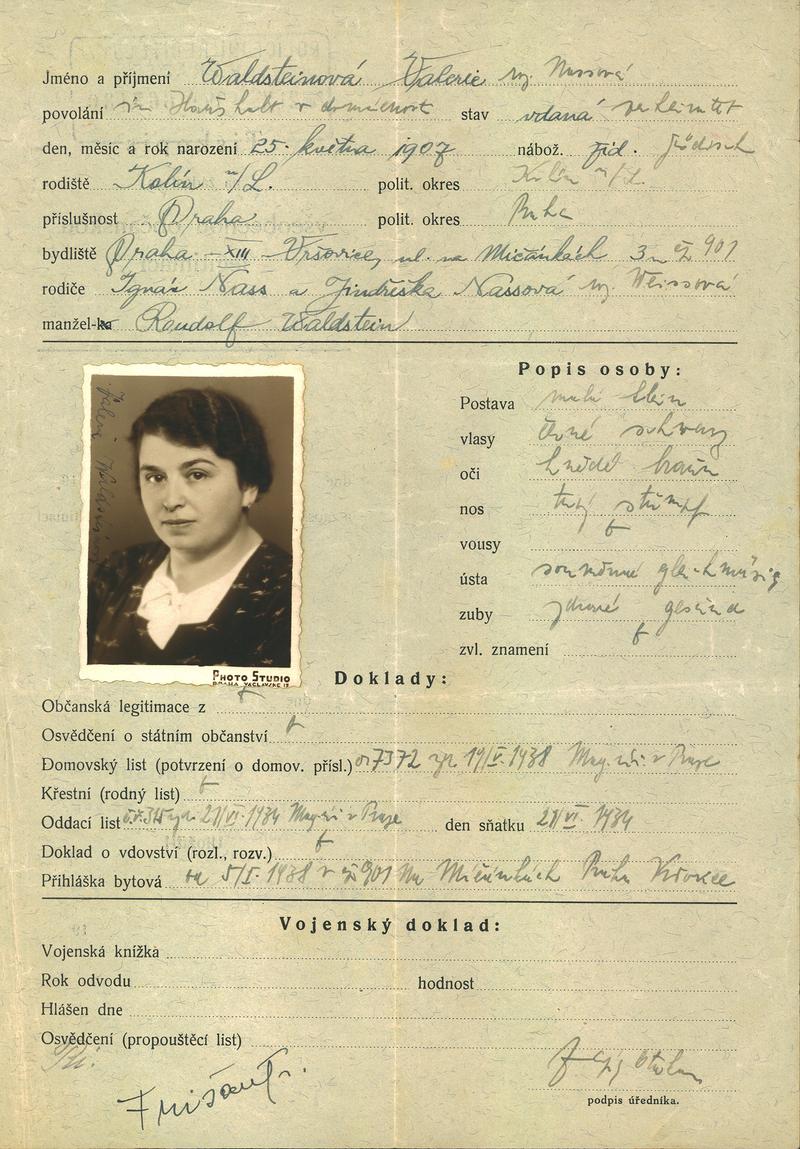 Jméno a příjmení Waldsteinová Valerie roz. Nassová
povolání im Haushalt v domácnosti stav vdaná verheiratet
den, měsíc a rok narození 25. května 1907 nábož. žid. jüdisch
rodiště Kolín n/L. polit. okres Kolín n/L.
příslušnost Praha polit. okres Praha
bydliště Praha - XIII Vršovice, ul. na Mičánkách 3 čp 901
rodiče Ignác Nass a Jindřiška Nassová roz. Weissová
manžel-ka Roudolf Waldstein
Popis osoby:
Postava malá klein
vlasy černé schwarz
oči hnědé braun
nos tupý stumpf
vousy
ústa souměrné gleichmäsig
zuby zdravé gesund
zvl. znamení
Valerie Waldsteinová
PHOTO STUDIO
Doklady:
Občanská legitimace z
Osvědčení o státním občanství
Domovský list (potvrzení o domov. přísl.) 7372 1938 Mag. v Praze
Křestní (rodný list)
Oddací list 21/VI. 1934 Mag. v Praze den sňatku 21/VI. 1934
Doklad o vdovství (rozl., rozv.)
Přihláška bytová od 5/I. 1938 v čp 901 Na Mičánkách Praha Vršovice
Vojenský doklad:
Vojenská knížka
Rok odvodu hodnost
Hlášen dne
Osvědčení (propouštěcí list)
podpis úředníka.